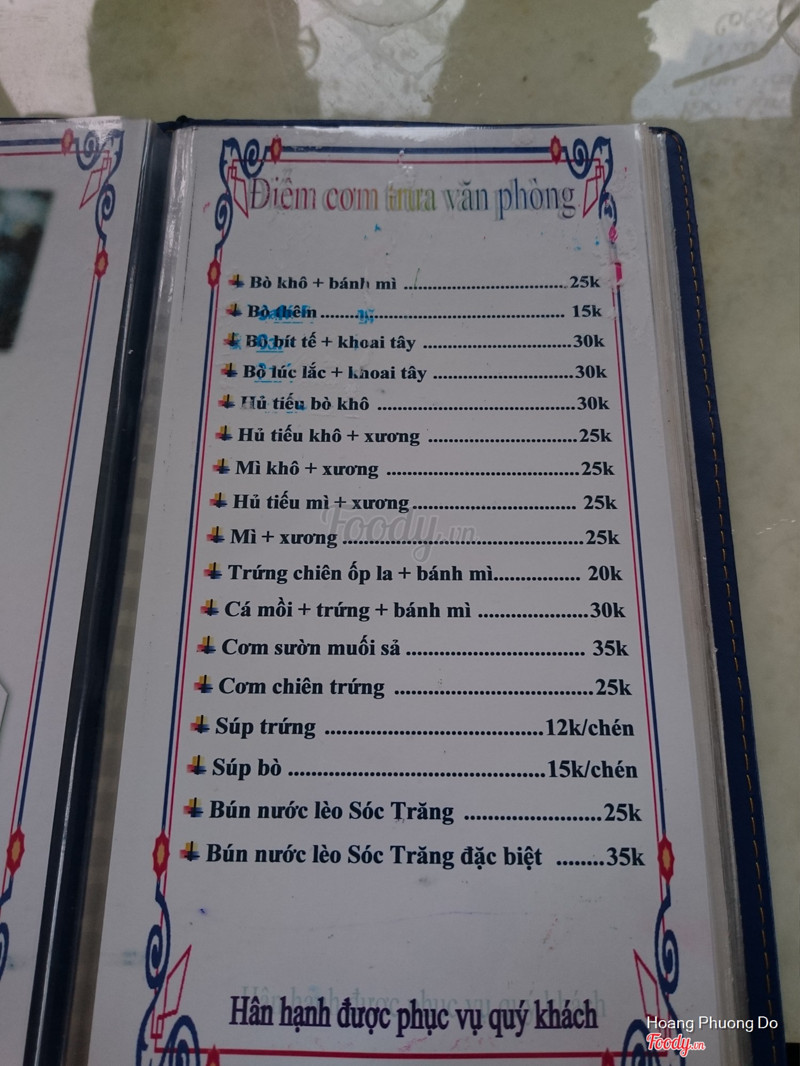 Điểm cơm trưa văn phòng
Bò khô + bánh mì ........................................ 25k
Bò thêm ............................................................ 15k
Bò bít tế + khoai tây ....................................30k
Bò lúc lắc + khoai tây ..................................30k
Hủ tiếu bò khô ...............................................30k
Hủ tiếu khô + xương ...................................25k
Mì khô + xương ............................................25k
Hủ tiếu mì + xương..................................... 25k
Mì + xương .....................................................25k
Trứng chiên ốp la + bánh mì................... 20k
Cá mồi + trứng + bánh mì ........................30k
Cơm sườn muối sả ...................................... 35k
Cơm chiên trứng ..........................................25k
Súp trứng ..............................................12k/chén
Súp bò .....................................................15k/chén
Bún nước lèo Sóc Trăng ............................25k
Bún nước lèo Sóc Trăng đặc biệt ..........35k
Hân hạnh được phục vụ quý khách
Foody.vn
Hoang Phuong Do
Foody.vn